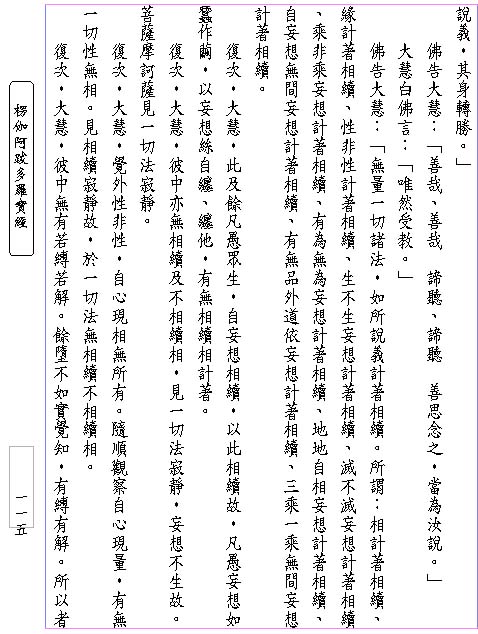 說義，其身轉勝。」
佛告大慧：「善哉、善哉　諦聽、諦聽　善思念之，當為汝說。」
大慧白佛言：「唯然受教。」
佛告大慧：「無量一切諸法，如所說義計著相續。所謂：相計著相續、
緣計著相續、性非性計著相續、生不生妄想計著相續、滅不滅妄想計著相續
、乘非乘妄想計著相續、有為無為妄想計著相續、地地自相妄想計著相續、
自妄想無間妄想計著相續、有無品外道依妄想計著相續、三乘一乘無間妄想
計著相續。
復次，大慧，此及餘凡愚眾生，自妄想相續，以此相續故，凡愚妄想如
蠶作繭，以妄想絲自纏、纏他，有無相續相計著。
復次，大慧，彼中亦無相續及不相續相，見一切法寂靜，妄想不生故。
菩薩摩訶薩見一切法寂靜。
復次，大慧，覺外性非性，自心現相無所有。隨順觀察自心現量，有無
一切性無相。見相續寂靜故，於一切法無相續不相續相。
復次，大慧，彼中無有若縛若解。餘墮不如實覺知，有縛有解。所以者
楞伽阿跋多羅寶經
一一五